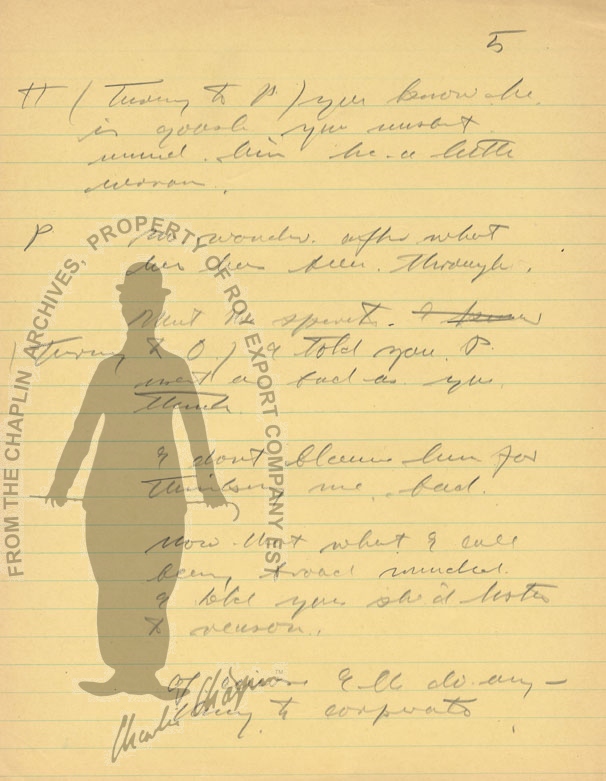 5
H (Turning to P) you know he
is you musnt
mind him he a little
P no wonder. after what
he's been through.
the spirit. I
(turning to O) I told you P.
wasnt as bad as you
think.
I dont blame him for
thinking me bad.
now that what I call
being broad minded.
I told you she'd listen
to reason.
of course I'll do any-
thing to
FROM THE CHAPLIN ARCHIVES, PROPERTY OF ROY EXPORT COMPANY EST
Charlie Chaplin